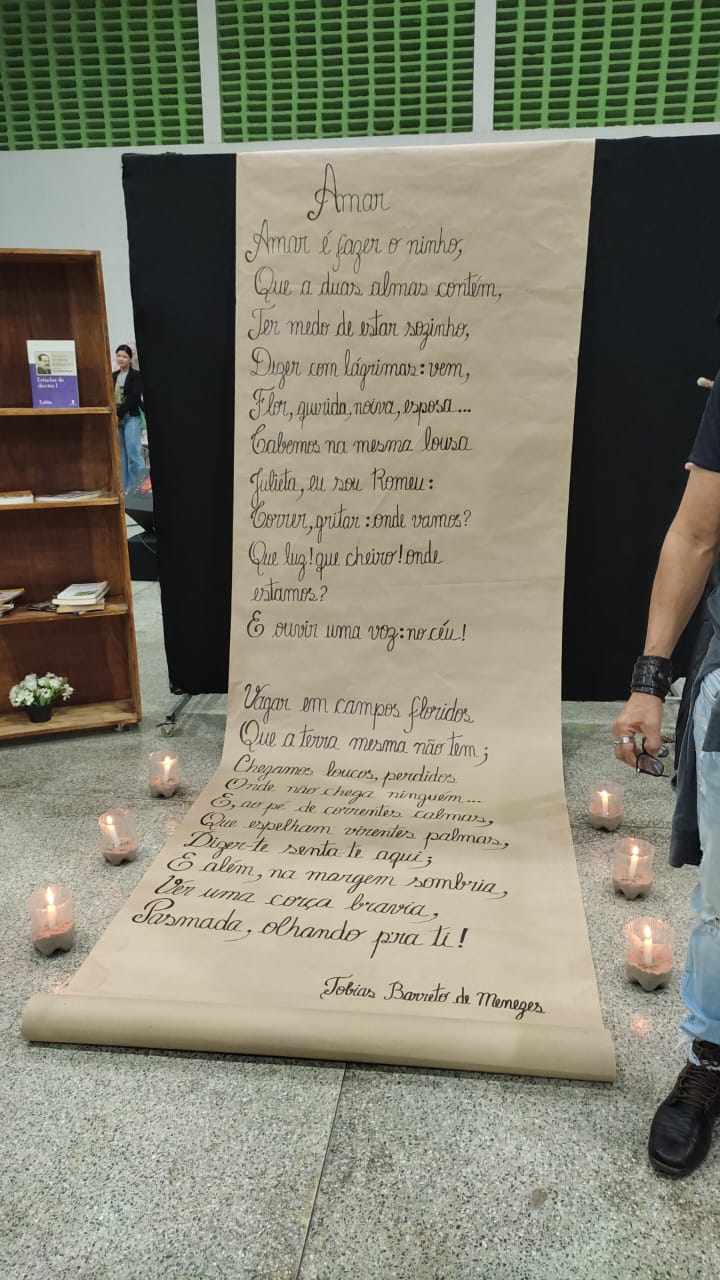 Amar
Amar é fazer o ninho,
Que a duas almas contém,
Ter medo de estar sozinho,
Dizer com lágrimas: vem,
Flor, querida, noiva, esposa...
Cabemos na mesma lousa
Julieta, eu sou Romeu:
Correr, gritar: onde vamos?
Que luz! que cheiro! onde
estamos?
E ouvir uma voz: no céu!
Vagar em campos floridos
Que a terra mesma não tem;
Chegamos loucos, perdidos
Onde não chega ninguém...
E, ao pé de correntes calmas,
Que espelham virentes palmas,
Dizer-te senta-te aqui;
E além, na margem sombria,
Vêr uma corça bravia,
Pasmada, olhando p'ra ti!
Tobias Barreto de Menezes
Estudos de
direito I